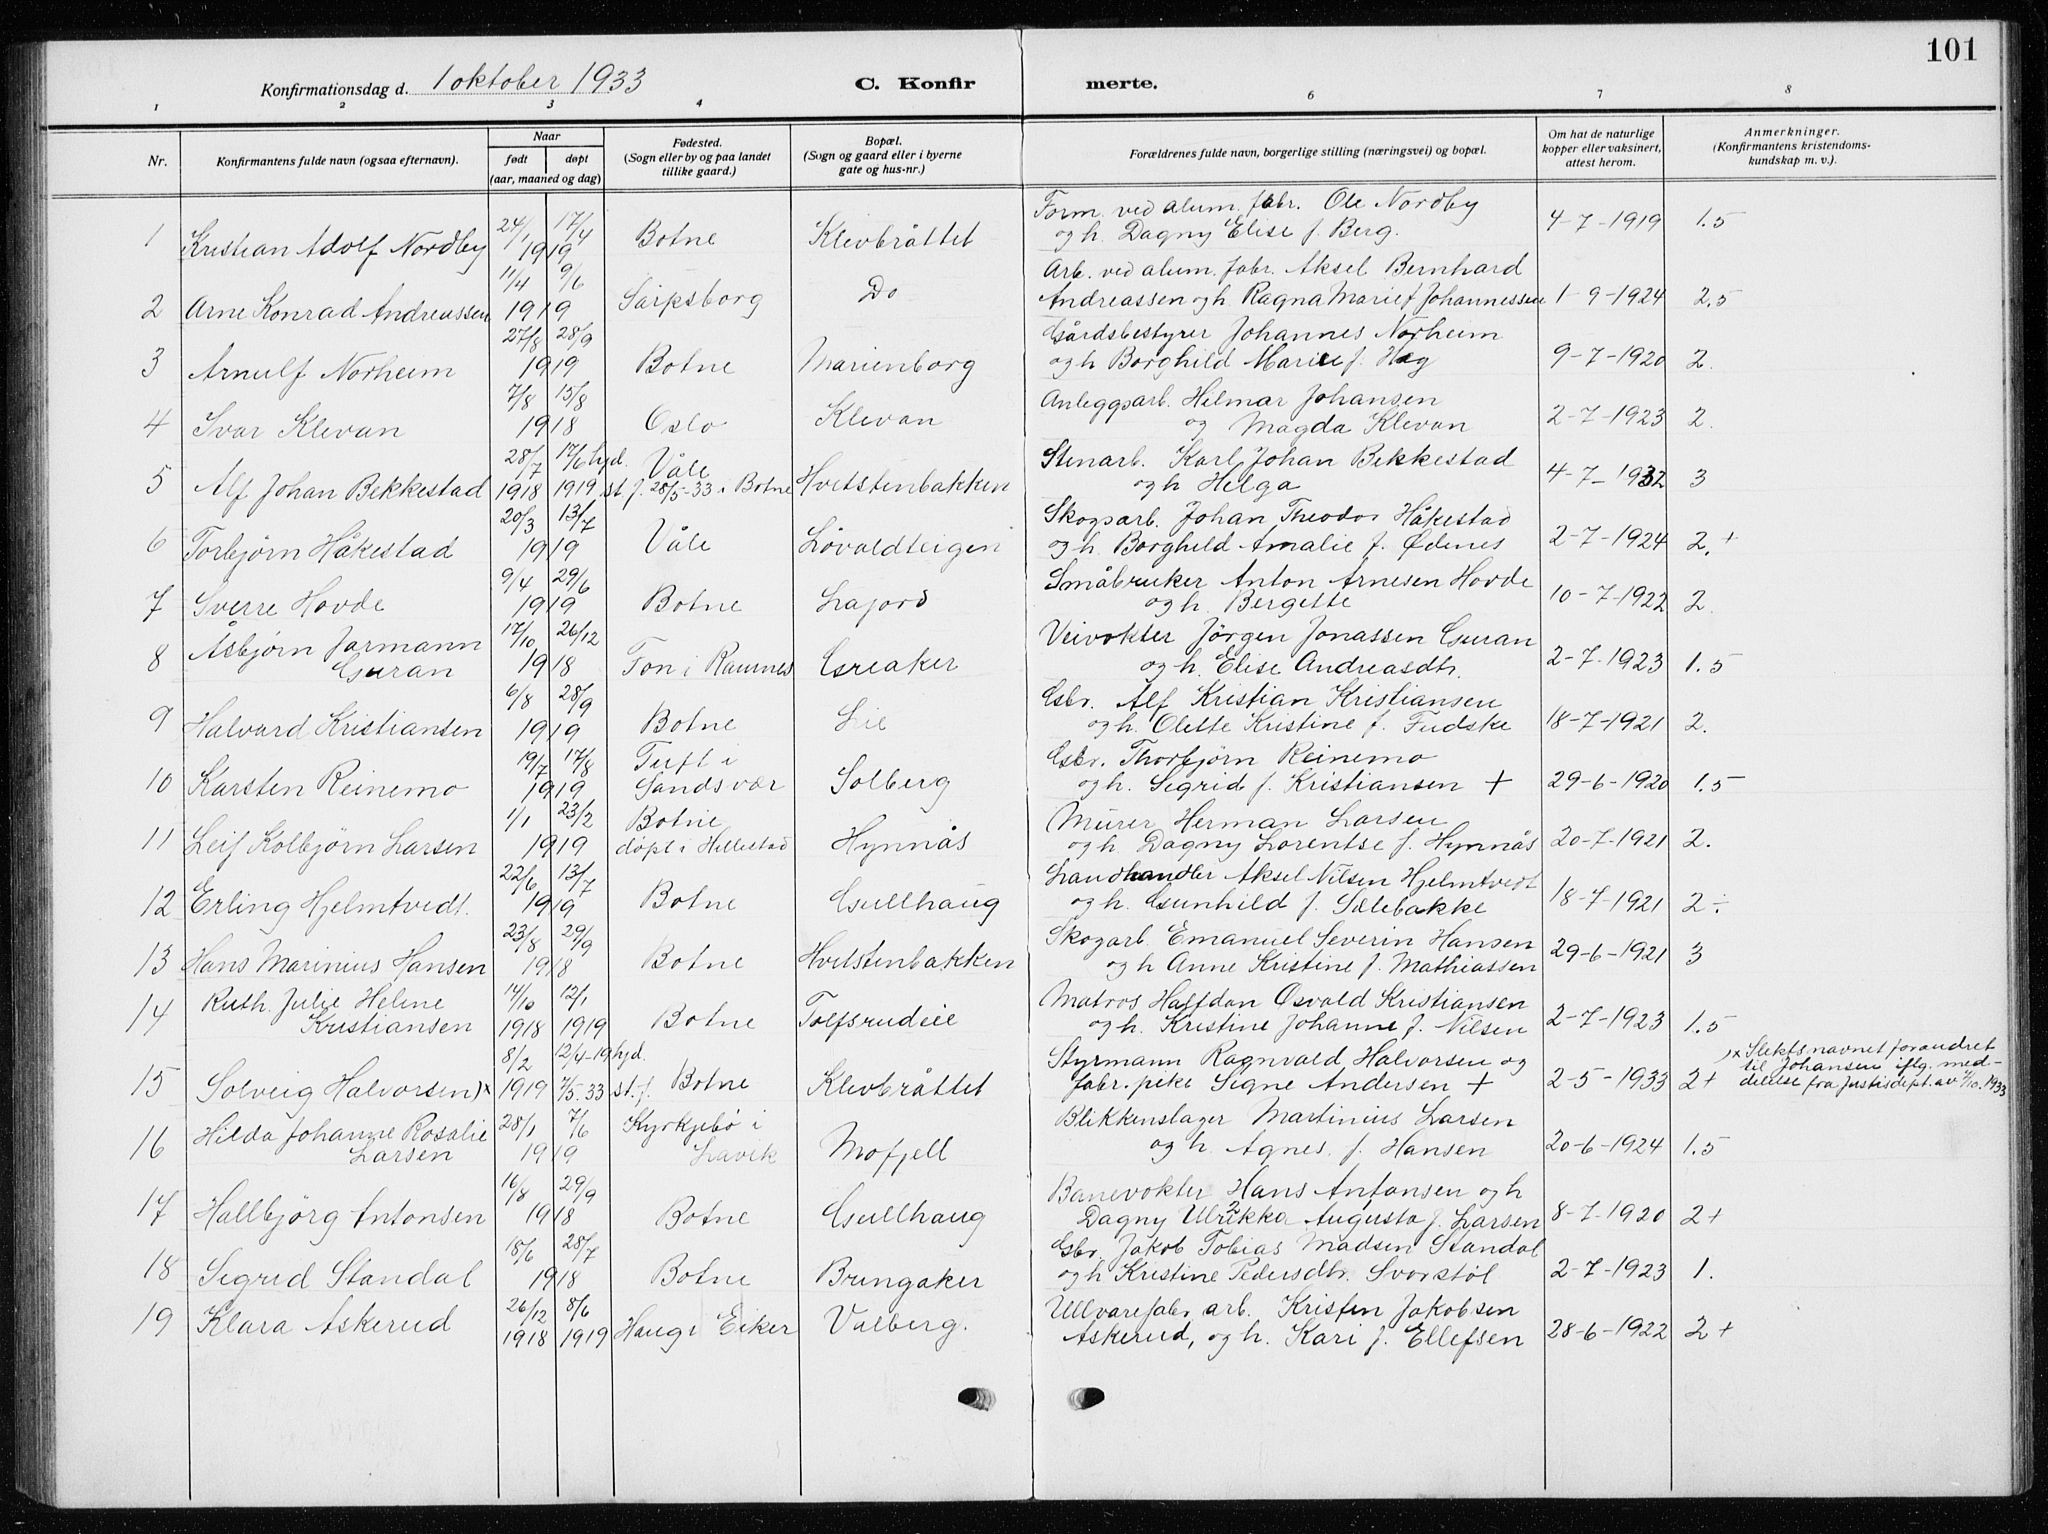 101
Konfirmationsdag d. 1 oktober 1933 C. Konfirmerte.
1 2 3 4 6 7 8
Nr. Konfirmantens fulde navn (ogsaa efternavn). Naar født døpt (aar, maaned og dag) Fødested. (Sogn eller by og paa landet tillike gaard.) Bopæl. (Sogn og gaard eller i byerne gate og hus-nr.) Forældrenes fulde navn, borgerlige stilling (næringsvei) og bopæl. Om hat de naturlige kopper eller vaksinert, attest herom. Anmerkninger. (Konfirmantens kristendoms-kundskap m. v.).
1 Kristian Adolf Nordby 24/1 17/4 1919 Botne Klevbråttet Form. ved alum. fabr. Ole Nordby
og h. Dagny Elise f. Berg. 4-7-1919 1.5
2 Arne Konrad Andreassen 11/4 9/6 1919 Sarpsborg Do Arb. ved alum. fabr. Aksel Bernhard
Andreassen og h. Ragna Marie f Johannessen 1-9-1924 2.5
3 Arnulf Norheim 27/8 28/9 1919 Botne Marienborg Gårdsbestyrer Johannes Norheim
og h Borghild Marie f. Hag 9-7-1920 2.
4 Ivar Klevan 7/8 15/8 1918 Oslo Klevan Anleggsarb. Hilmar Johansen
og Magda Klevan 2-7-1923 2.
5 Alf Johan Bekkestad 28/7 1918 17/6 1919 hjd. st. f. 28/5-33 i Botne Våle Hvitstenbakken Stenarb. Karl Johan Bekkestad
og h Helga 4-7-1932 3
6 Torbjørn Håkestad 20/3 13/7 1919 Våle Løvaldteigen Skogsarb. Johan Theodor Håkestad
og h. Borghild Amalie f. Ødenes 2-7-1924 2.+
7 Sverre Hovde 9/4 29/6 1919 Botne Lajord Småbruker Anton Arnesen Hovde
og h. Bergette 10-7-1922 2.
8 Åsbjørn Jarmann
Guran 17/10 26/12 1918 Fon i Ramnes Greaker Veivokter Jørgen Jonassen Guran
og h. Elise Andreasdtr. 2-7-1923 1.5
9 Halvard Kristiansen 6/8 28/9 1919 Botne Lie Gbr. Alf Kristian Kristiansen
og h. Olette Kristine f. Fudske 18-7-1921 2.
10 Karsten Reinemo 19/7 17/8 1919 Tuft i
Sandsvær Solberg Gbr. Thorbjørn Reinemo
og h. Sigrid f. Kristiansen + 29-6-1920 1.5
11 Leif Kolbjørn Larsen 1/1 23/2 1919 Botne
døpt i Hillestad Hynnås Murer Herman Larsen
og h. Dagny Lorentse f. Hynnås 20-7-1921 2.
12 Erling Hjelmtvedt. 22/6 13/7 1919 Botne Gullhaug Landhandler Aksel Nilsen Hjelmtvedt
og h. Gunhild f. Sælebakke 18-7-1921 2÷
13 Hans Marinius Hansen 23/8 29/9 1918 Botne Hvitstenbakken Skogarb. Emanuel Severin Hansen
og h Anne Kristine f. Mathiassen 29-6-1921 3
14 Ruth Julie Helene
Kristiansen 14/10 1918 12/1 1919 Botne Tolfsrudeie Matros Halfdan Osvald Kristiansen
og h. Kristine Johanne f. Nilsen 2-7-1923 1.5
15 Solveig Halvorsen)x 8/2 1919 12/4-19 hjd. 7/5.33 st. f. Botne Klevbråttet Styrmann Ragnvald Halvorsen og
fabr. pike Signe Andersen + 2-5-1933 2+ )x Slektsnavnet forandret
til Johansen iflg. med-
delelse fra Justisdept. av /10.1933
16 Hilda Johanne Rosalie
Larsen 28/1 7/6 1919 Kyrkjebø i
Lavik Mofjell Blikkenslager Martinius Larsen
og h. Agnes f. Hansen 20-6-1924 1.5
17 Hallbjørg Antonsen 16/8 29/9 1918 Botne Gullhaug Banevokter Hans Antonsen og h
Dagny Ulrikka Augusta f. Larsen 8-7-1920 2+
18 Sigrid Standal 18/6 28/7 1918 Botne Bringaker Gbr. Jakob Tobias Madsen Standal
og h Kristine Pedersdtr. Svorstøl 2-7-1923 1.
19 Klara Askerud 26/12 1918 8/6 1919 Haug i Eiker Valberg. Ullvarefabr. arb. Kristen Jakobsen
Askerud, og h. Kari f. Ellefsen 28-6-1922 2+